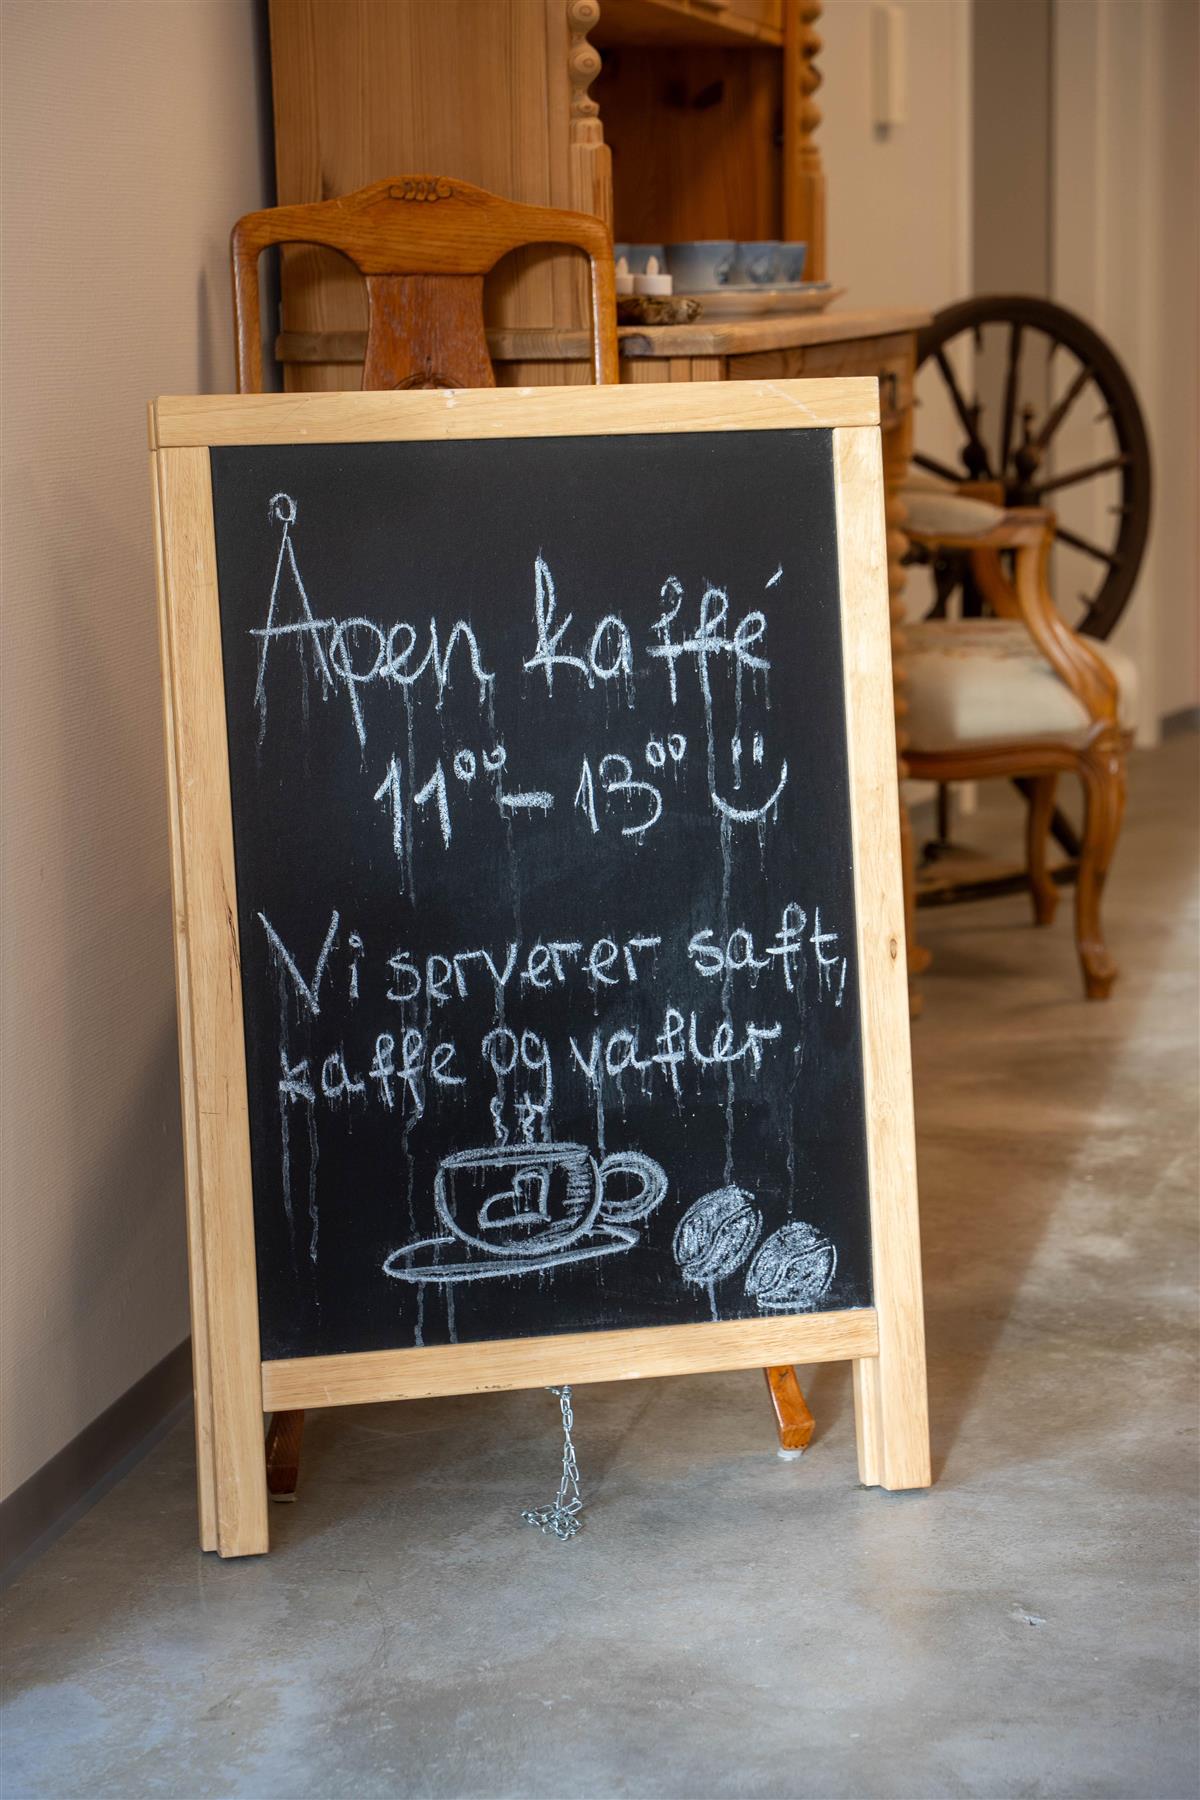 Åpen kaffé
11⁰⁰ - 13⁰⁰
Vi serverer saft,
kaffe og vafler